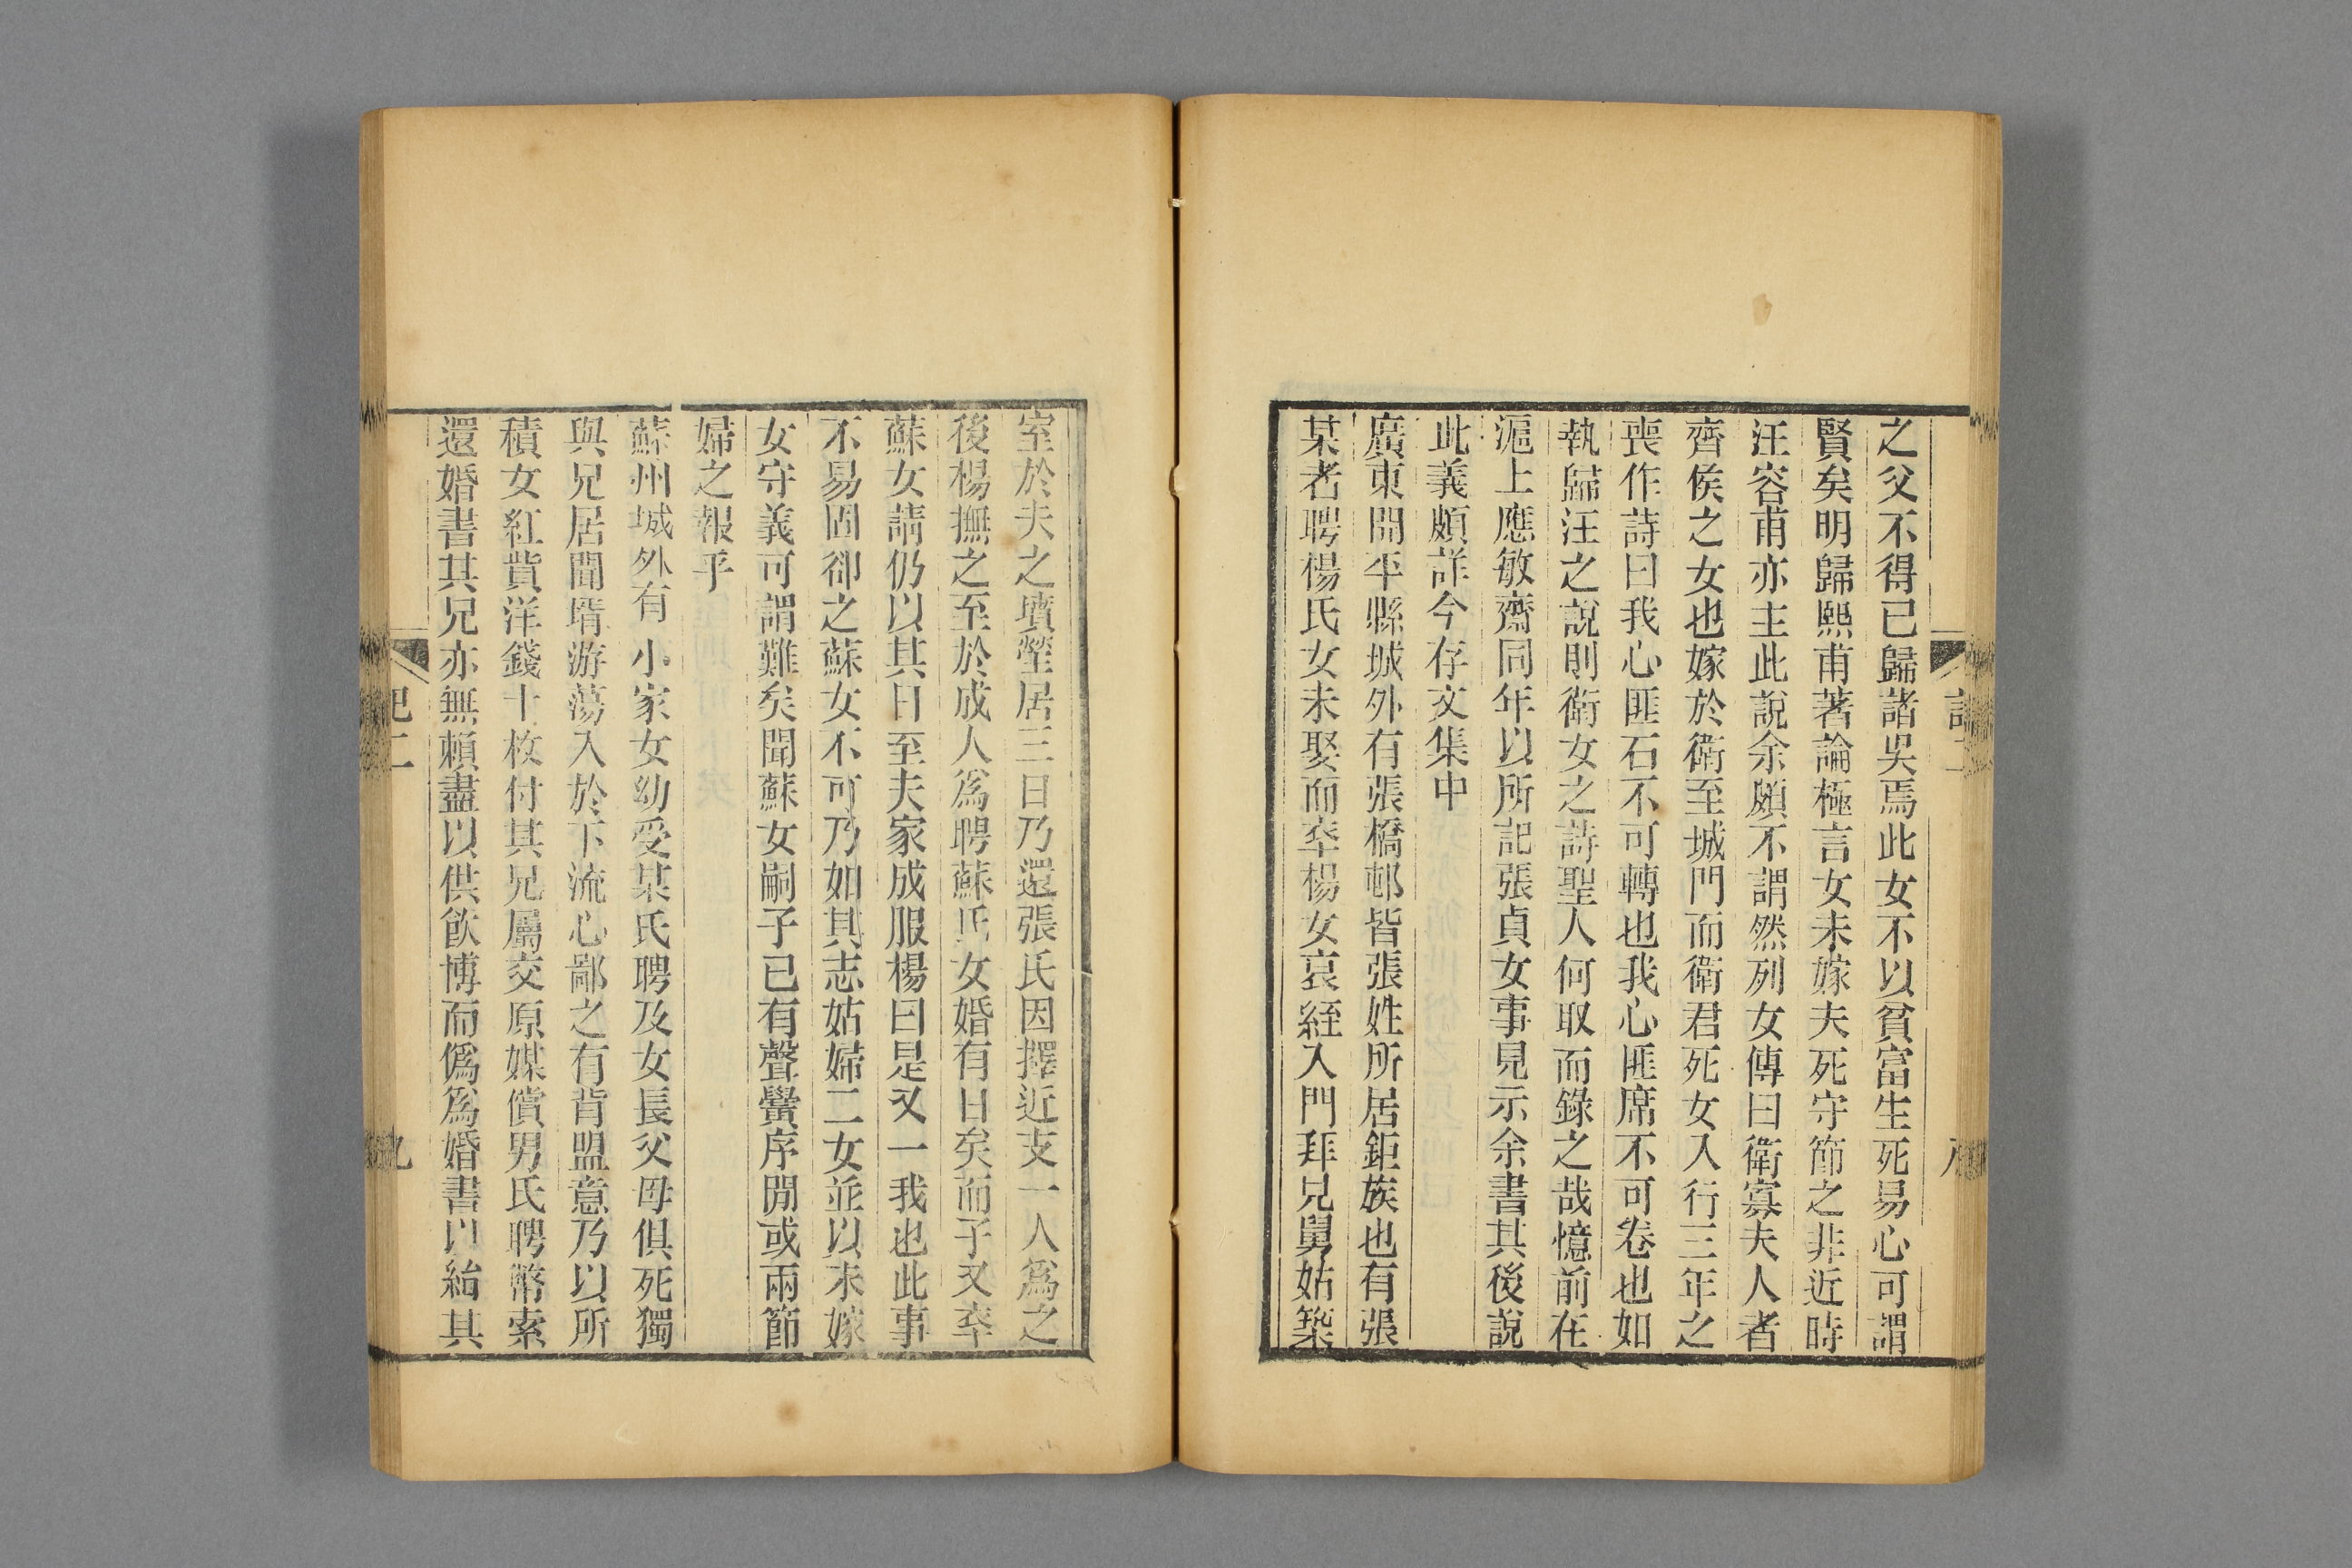 之父不得已歸諸吳焉此女不以貧富生死易心可謂
賢矣明歸熙甫著論極言女未嫁夫死守節之非近時
汪容甫亦主此說余頗不謂然列女傳曰衛寡夫人者
齊侯之女也嫁於衛至城門而衛君死女入行三年之
喪作詩曰我心匪石不可轉也我心匪席不可卷也如
執歸汪之說則衛女之詩聖人何取而錄之哉憶前在
滬上應敏齋同年以所記張貞女事見示余書其後說
此義頗詳今存文集中
廣東開平縣城外有張橋邨皆張姓所居鉅族也有張
某者聘楊氏女未娶而卒楊女哀絰入門拜見舅姑築
室於夫之墳塋居三日乃還張氏因擇近支一人爲之
後楊撫之至於成人爲聘蘇氏女婚有日矣而子又卒
蘇女請仍以其日至夫家成服楊曰是又一我也此事
不易固卻之蘇女不可乃如其志姑婦二女並以未嫁
女守義可謂難矣聞蘇女嗣子已有聲黌序閒或兩節
婦之報乎
蘇州城外有小家女幼受某氏聘及女長父母俱死獨
與兄居聞壻游蕩入於下流心鄙之有背盟意乃以所
積女紅貲洋錢十枚付其兄屬交原媒償男氏聘幣索
還婚書其兄亦無賴盡以供飲博而僞爲婚書以紿其
記二
九